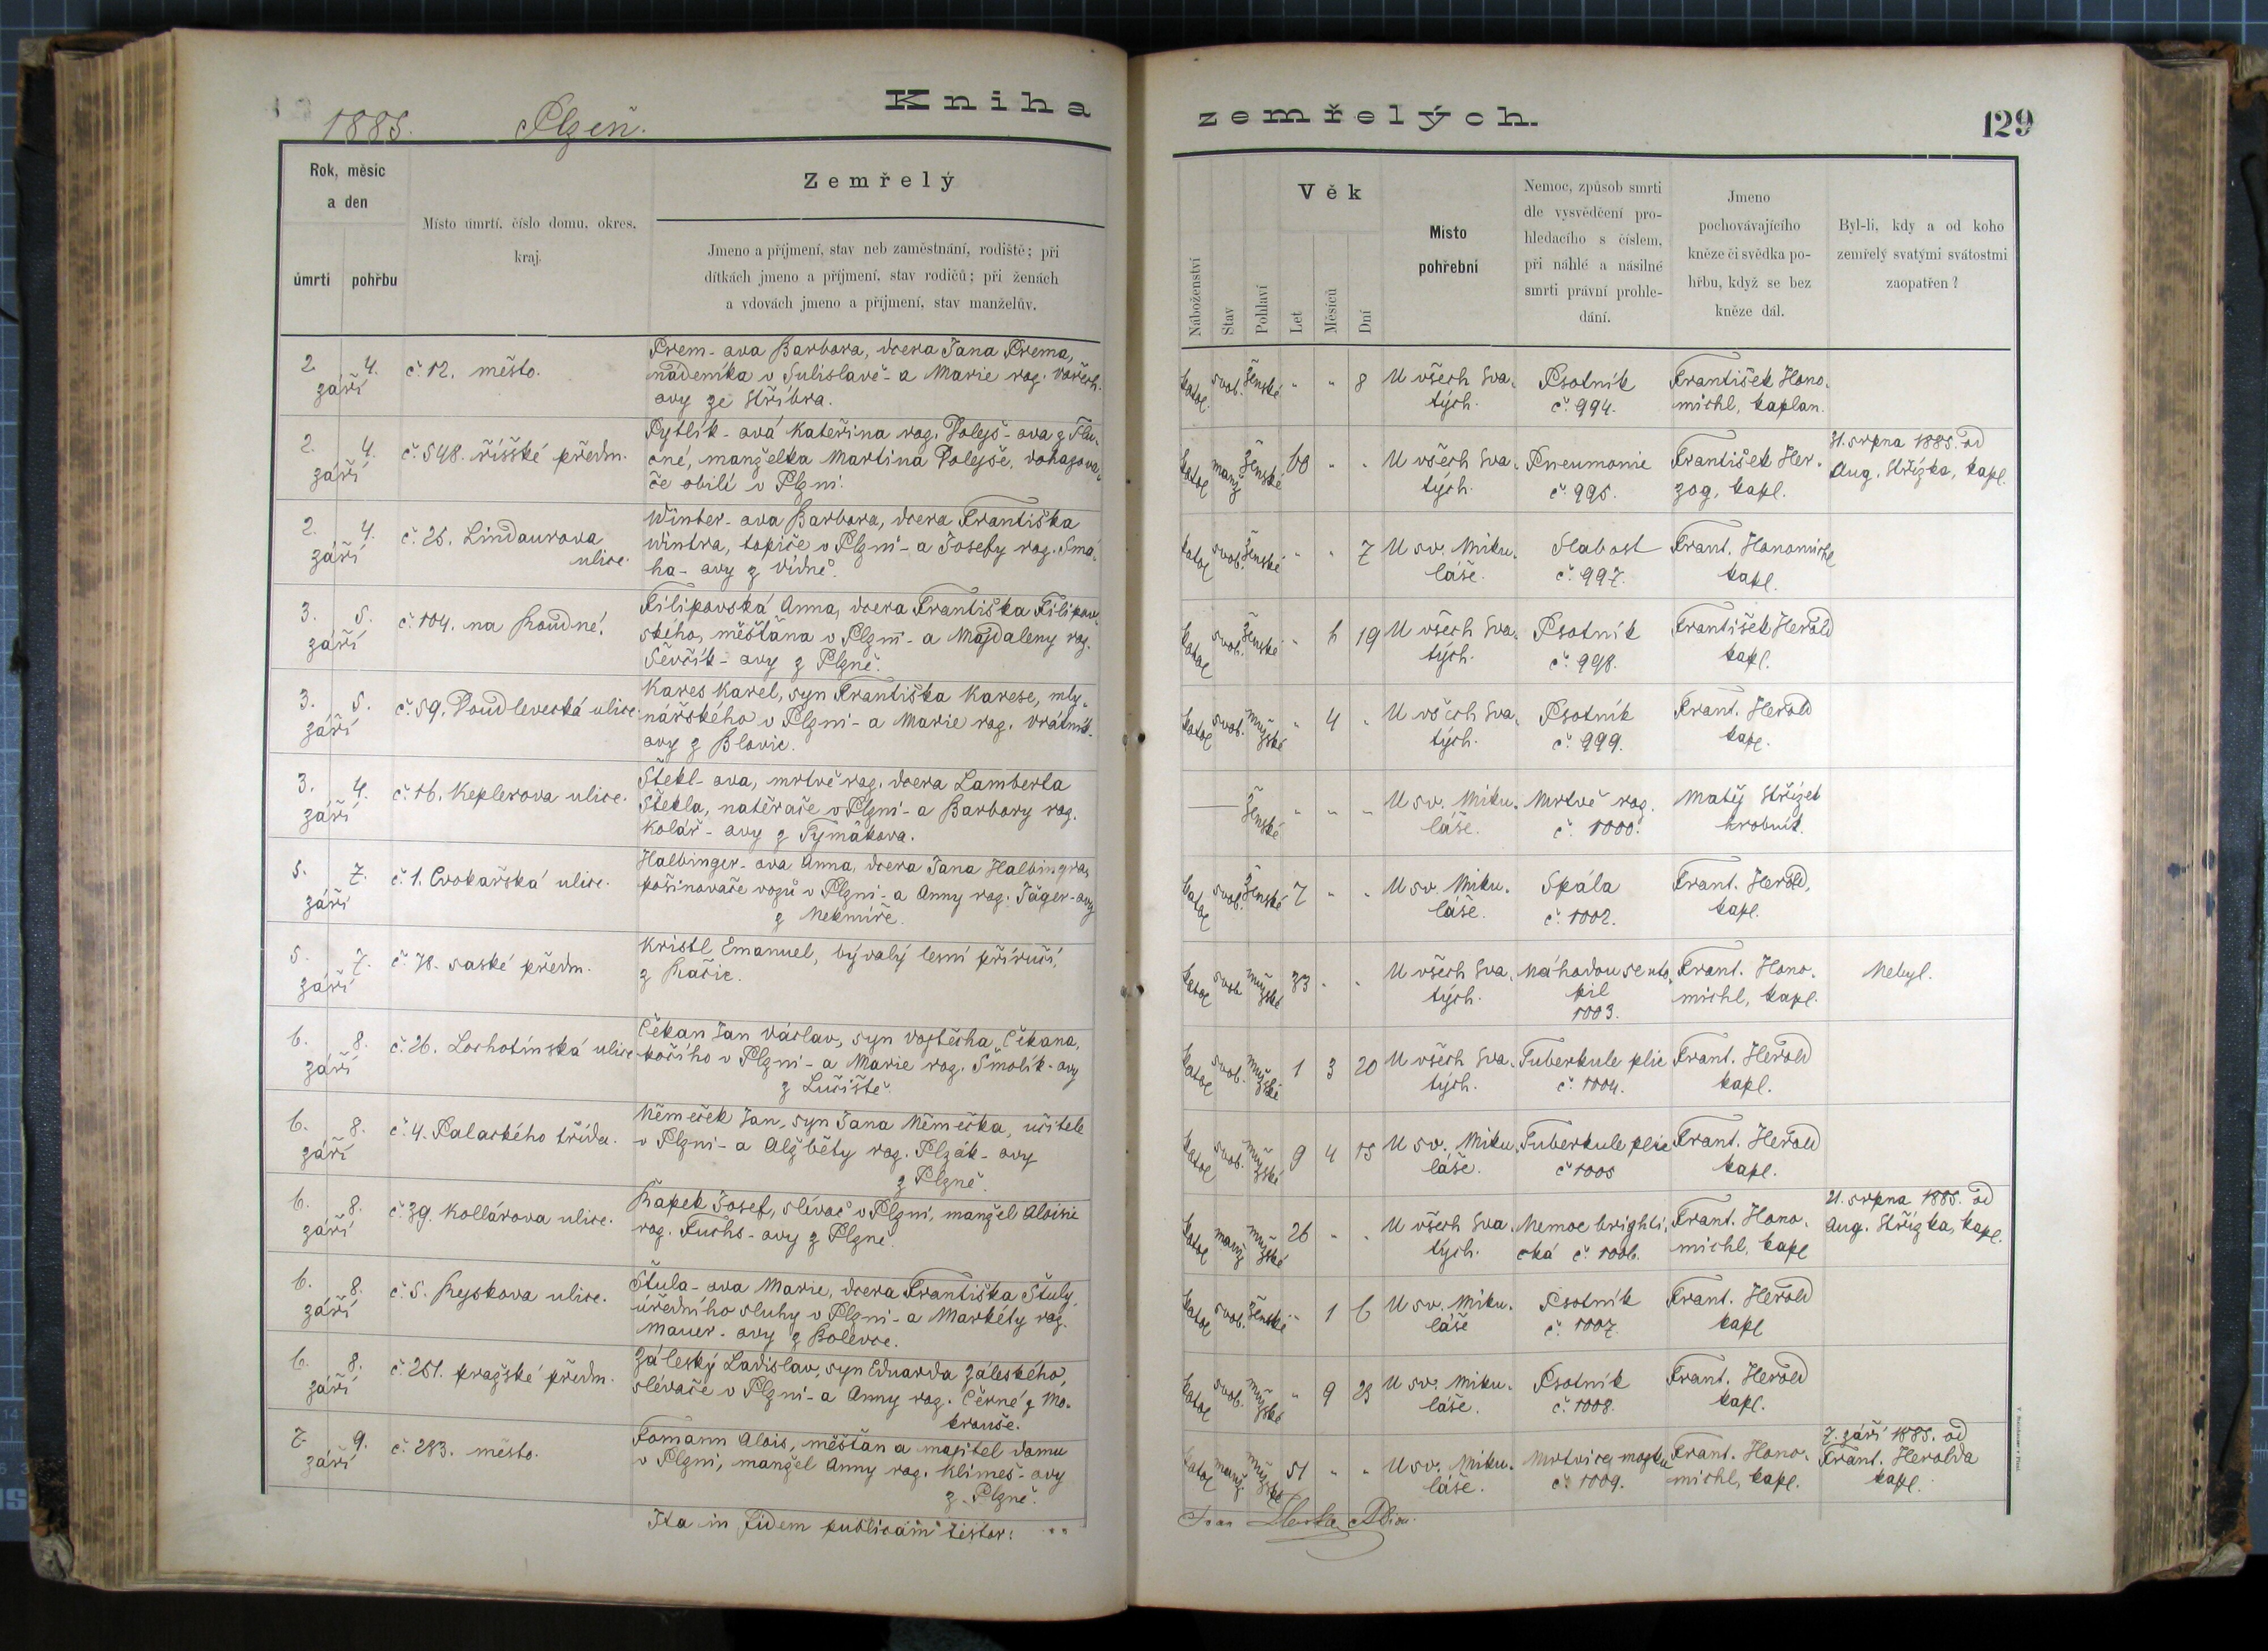 1885. Plzeň.
Kniha
zemřelých.
129
Rok, měsíc
a den
úmrtí
pohřbu
Místo úmrtí, číslo domu, okres,
kraj.
Zemřelý
Jmeno a příjmení, stav neb zaměstnání, rodiště; při
dítkách jmeno a příjmení, stav rodičů; při ženách
a vdovách jmeno a příjmení, stav manželův.
Náboženství
Stav
Pohlaví
Věk
Let
Měsíců
Dní
Místo
pohřební
Nemoc, způsob smrti
dle vysvědčení pro-
hledacího s číslem,
při náhlé a násilné
smrti právní prohle-
dání.
Jmeno
pochovávajícího
kněze či svědka po-
hřbu, když se bez
kněze dál.
Byl-li, kdy a od koho
zemřelý svatými svátostmi
zaopatřen?
2 4.
září
č. 12. město.
Prem-ova Barbora, dcera Jana Prema,
nádeníka v Sulislavě - a Marie roz.
ovy ze Stříbra.
katol. svob. ženské " " 8
U všech Sva-
tých.
Psotník
č. 994.
František Hono-
michl, kaplan.
2. 4.
září
č. 548. říšské předm.
Pytlík-ová Kateřina roz. Polejš-ova z Flu-
cné, manželka Martina Polejše, dohazova-
če obilí v Plzni.
katol. manž. ženské 60 " "
U všech Sva-
tých.
Pneumonie
č. 995.
František Her-
zog, kapl.
31. srpna 1885. od
Aug. Střízka, kapl.
2. 4.
září
č. 25. Lindaurova
ulice.
Winter-ova Barbora, dcera Františka
Wintra, topiče v Plzni - a Josefy roz. Sma-
ha-ovy z Vídně.
katol. svob. ženské " " 7
U sv. Miku-
láše.
Slabost
č. 997.
Frant. Honomichl
kapl.
3. 5.
září
č. 104. na Roudné.
Filipovská Anna, dcera Františka Filipov-
ského, měšťana v Plzni - a Majdaleny roz.
Ševčík-ovy z Plzně.
katol. svob. ženské " 6 19
U všech Sva-
tých.
Psotník
č. 998.
František Herold
kapl.
3. 5.
září
č. 59. Doudlevecká ulice.
Kares Karel, syn Františka Karese, mly-
nářského v Plzni - a Marie roz. Vrátník-
ovy z Blovic.
katol. svob. mužské " 4 "
U všech Sva-
tých.
Psotník
č. 999.
Frant. Herold
kapl.
3. 4.
září
č. 16. Keplerova ulice.
Štekl-ova, mrtvě roz. dcera Lamberta
Štekla, natěrače v Plzni - a Barbory roz.
Kolář-ovy z Tymákova.
ženské " " "
U sv. Miku-
láše.
Mrtvě roz.
č. 1000.
Matěj Střízek
hrobník.
5. 7.
září
č. 1. Cvokařská ulice.
Halbinger-ova Anna, dcera Jana Halbingra,
košinovače vozů v Plzni - a Anny roz. Jäger-ovy
z Nekmíře.
katol. svob. ženské 7 " "
U sv. Miku-
láše.
Spála
č. 1002.
Frant. Herold,
kapl.
5. 7.
září
č. 78. saské předm.
Kristl Emanuel, bývalý lesní příručí,
z Kačic.
katol. svob. mužské 33 " "
U všech Sva-
tých.
Náhodou se uto-
pil
1003.
Frant. Hono-
michl, kapl.
Nebyl.
6. 8.
září
č. 26. Lochotínská ulice
Čekan Jan Václav, syn Vojtěcha Čekana,
kočího v Plzni - a Marie roz. Smolík-ovy
z Lučiště.
katol. svob. mužské 1 3 20
U všech Sva-
tých.
Tuberkule plic
č. 1004.
Frant. Herold
kapl.
6. 8.
září
č. 4. Palackého třída.
Němeček Jan, syn Jana Němečka, učitele
v Plzni - a Alžběty roz. Plzák-ovy
z Plzně.
katol. svob. mužské 9 4 15
U sv. Miku-
láše.
Tuberkule plic
č. 1005
Frant. Herold
kapl.
6. 8.
září
č. 39. Kollárova ulice.
Kapek Josef, slévač v Plzni, manžel Aloisie
roz. Fuchs-ovy z Plzně.
katol. manž. mužské 26 " "
U všech Sva-
tých.
Nemoc brighti-
cká č. 1006.
Frant. Hono-
michl, kapl
21. srpna 1885. od
Aug. Střízka, kapl.
6. 8.
září
č. 5. Ryskova ulice.
Štula-ova Marie, dcera Františka Štuly,
úředního sluhy v Plzni - a Markéty roz.
Mauer-ovy z Bolevce.
katol. svob. ženské " 1 6
U sv. Miku-
láše
Psotník
č. 1007.
Frant. Herold
kapl
6. 8.
září
č. 251. pražské předm.
Záleský Ladislav, syn Eduarda Záleského,
slévače v Plzni - a Anny roz. Černé z Mo-
krouše.
katol. svob. mužské " 9 23
U sv. Miku-
láše.
Psotník
č. 1008.
Frant. Herold
kapl.
7. 9.
září
č. 283. město.
Tomann Alois, měšťan a majitel domu
v Plzni, manžel Anny roz. Klimeš-ovy
z Plzně.
katol. manž. mužské 51 " "
U sv. Miku-
láše.
Mrtvice mozku
č. 1009.
Frant. Hono-
michl, kapl.
7. září 1885. od
Frant. Herolda
kapl.
Ita in fidem publicam testor: